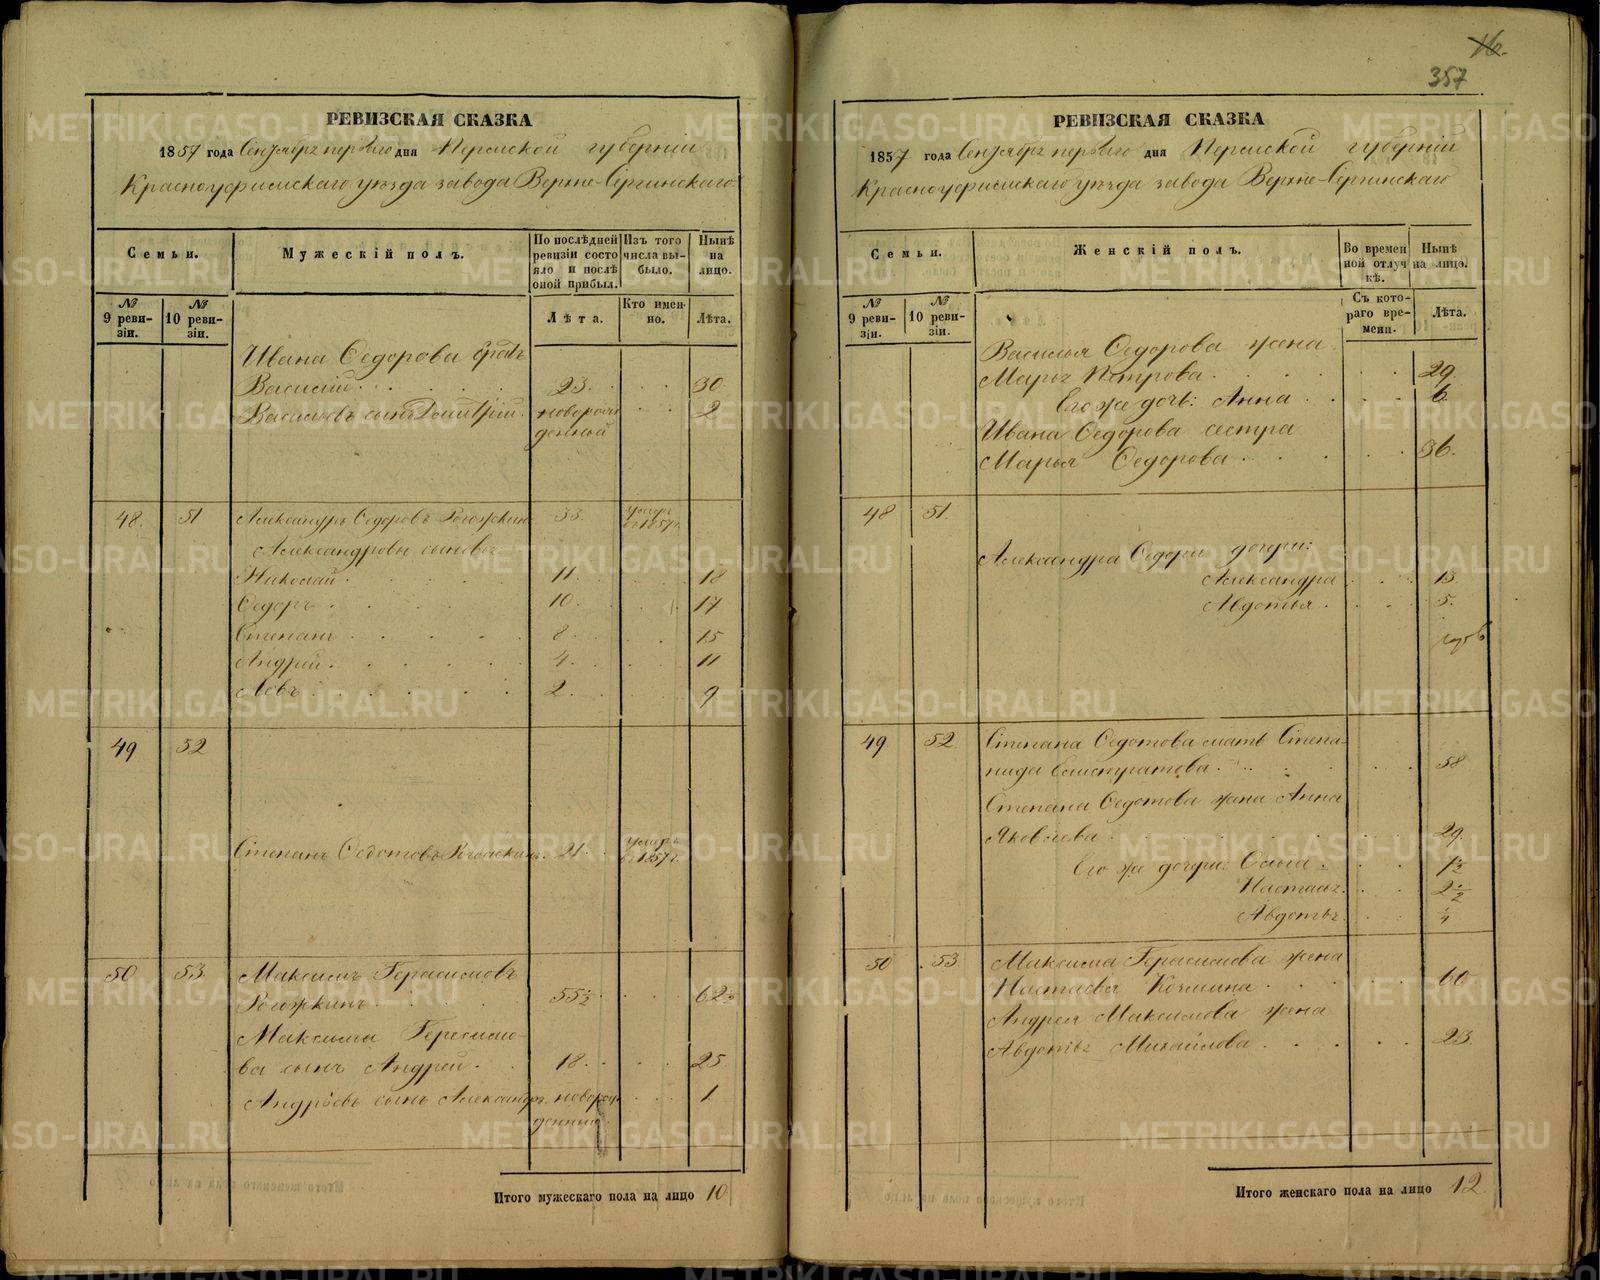 16.
357
РЕВИЗСКАЯ СКАЗКА
1857 года Сентября первого дня Пермской губерній
Красноуфимскаго уѣзда завода Верхне-Сергинскаго
Семьи.
Мужескій полъ.
По послѣдней ревизіи состояло и послѣ оной прибыл.
Изъ того числа выбыло.
Нынѣ на лицо.
№ 9 ревизіи.
№ 10 ревизіи.
Лѣта.
Кто именно.
Лѣта.
Ивана Ѳедорова братъ
Василій 23. 30
Васильевъ сынъ Дмитрій новорож 2
денный
48. 51 Александръ Ѳедоровъ Рогожкинъ 33. умеръ в 1857 г.
Александровы сыновья
Николай 11. 18
Ѳедоръ 10. 17
Степанъ 8. 15
Андрей 4. 11
Левъ 2. 9
49 52
Степанъ Ѳедотовъ Рогожкинъ 21. умеръ в 1857 г.
50 53 Максимъ Герасимовъ
Рогожкинъ 55½ 62½
Максима Герасимо-
ва сынъ Андрей 18. 25
Андрѣевъ сынъ Александръ новорож 1
денный
Итого мужескаго пола на лицо 10
РЕВИЗСКАЯ СКАЗКА
1857 года Сентября первого дня Пермской губерній
Красноуфимскаго уѣзда завода Верхне-Сергинскаго
Семьи.
Женскій полъ.
Во временной отлучкѣ.
Нынѣ на лицо.
№ 9 ревизіи.
№ 10 ревизіи.
Съ котораго времени.
Лѣта.
Василья Ѳедорова жена
Марья Петрова 29
Его же дочь: Анна 6.
Ивана Ѳедорова сестра
Марья Ѳедорова 36.
48 51.
Александра Ѳедора дочери:
Александра 13.
Авдотья 5.
49 52 Степана Ѳедотова мать Степа-
нида Елистратова 58
Степана Ѳедотова жена Анна
Яковлева 29
Его же дочери: Ольга 7½
Настасья 2½
Авдотья ¼
50 53 Максима Герасимова жена
Настасья Козмина 60
Андрея Максимова жена
Авдотья Михайлова 23.
Итого женскаго пола на лицо 12
METRIKI.GASO-URAL.RU